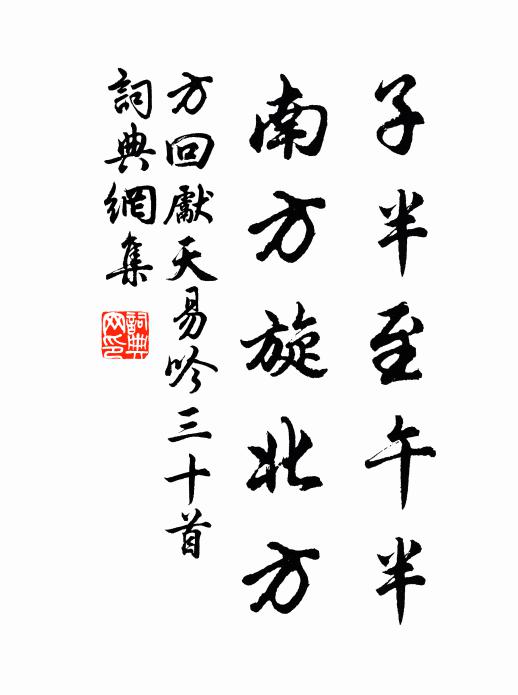 子半至午半
南方旋北方
方回獻天易吟三十首
詞典網集
詞典網印